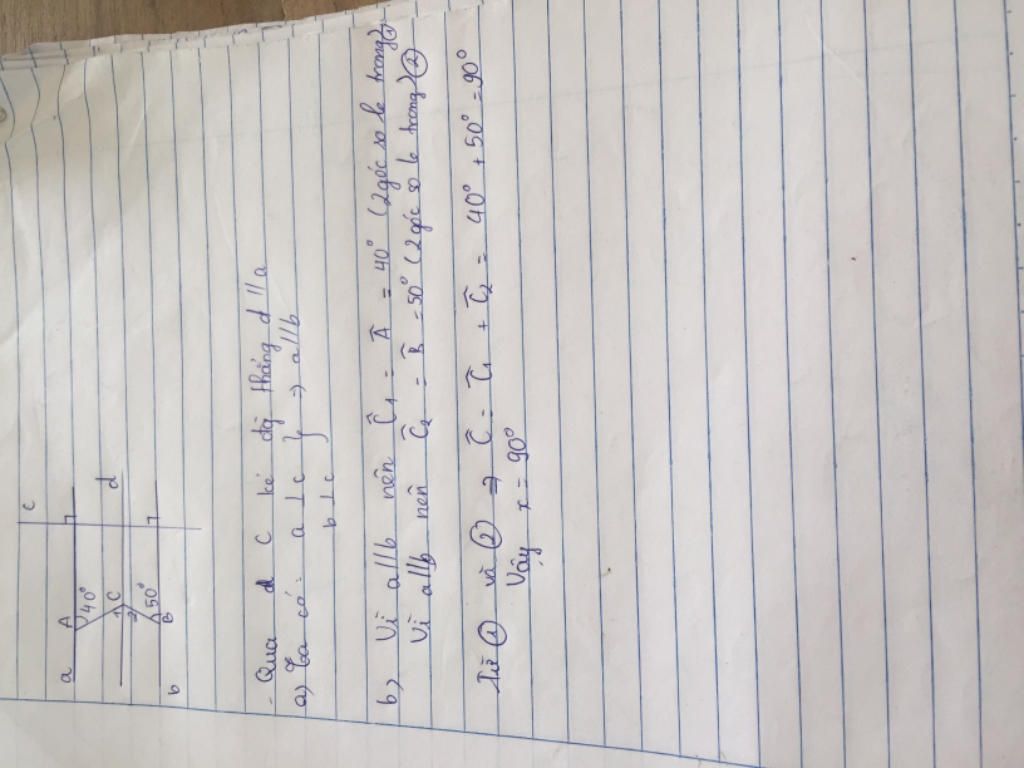 c
a A
40°
1 C d
2
50°
b B
- Qua C kẻ đg̃ thẳng d // a
a) Ta có: a ⊥ c } => a//b
b ⊥ c
b) Vì a//b nên Ĉ1 = Â = 40° (2 góc so le trong) ①
Vì a//b nên Ĉ2 = B̂ = 50° (2 góc so le trong) ②
Từ ① và ② => Ĉ = Ĉ1 + Ĉ2 = 40° + 50° = 90°
Vậy x = 90°